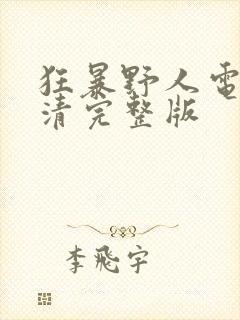 狂暴野人電
清完整版
李飛宇